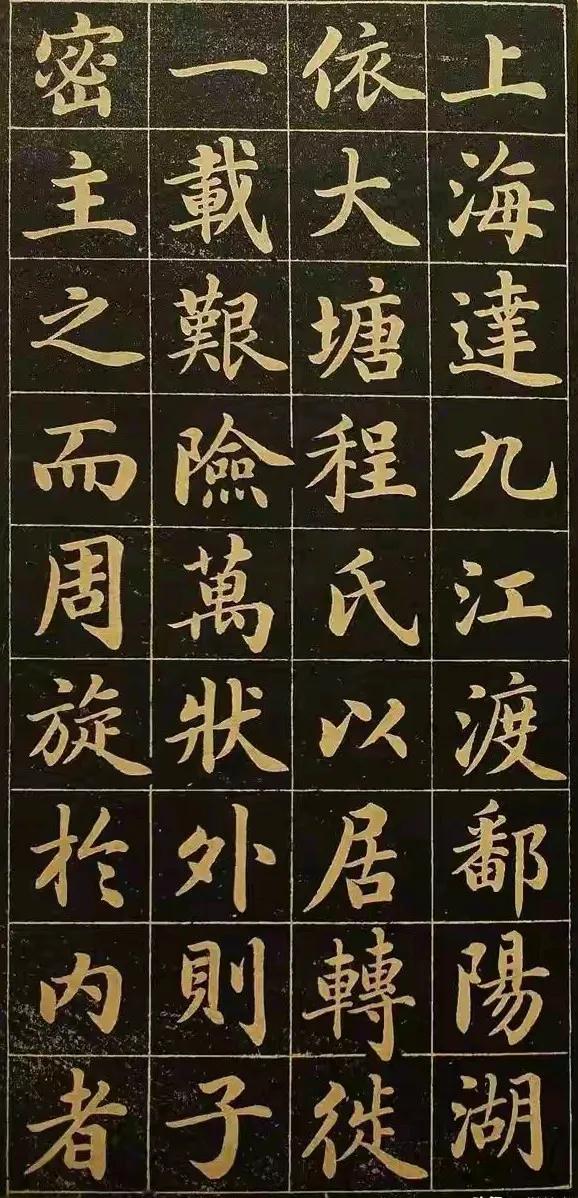 上海達九江渡鄱陽湖
依大塘程氏以居轉徙
一載艱險萬狀外則子
密主之而周旋於內者